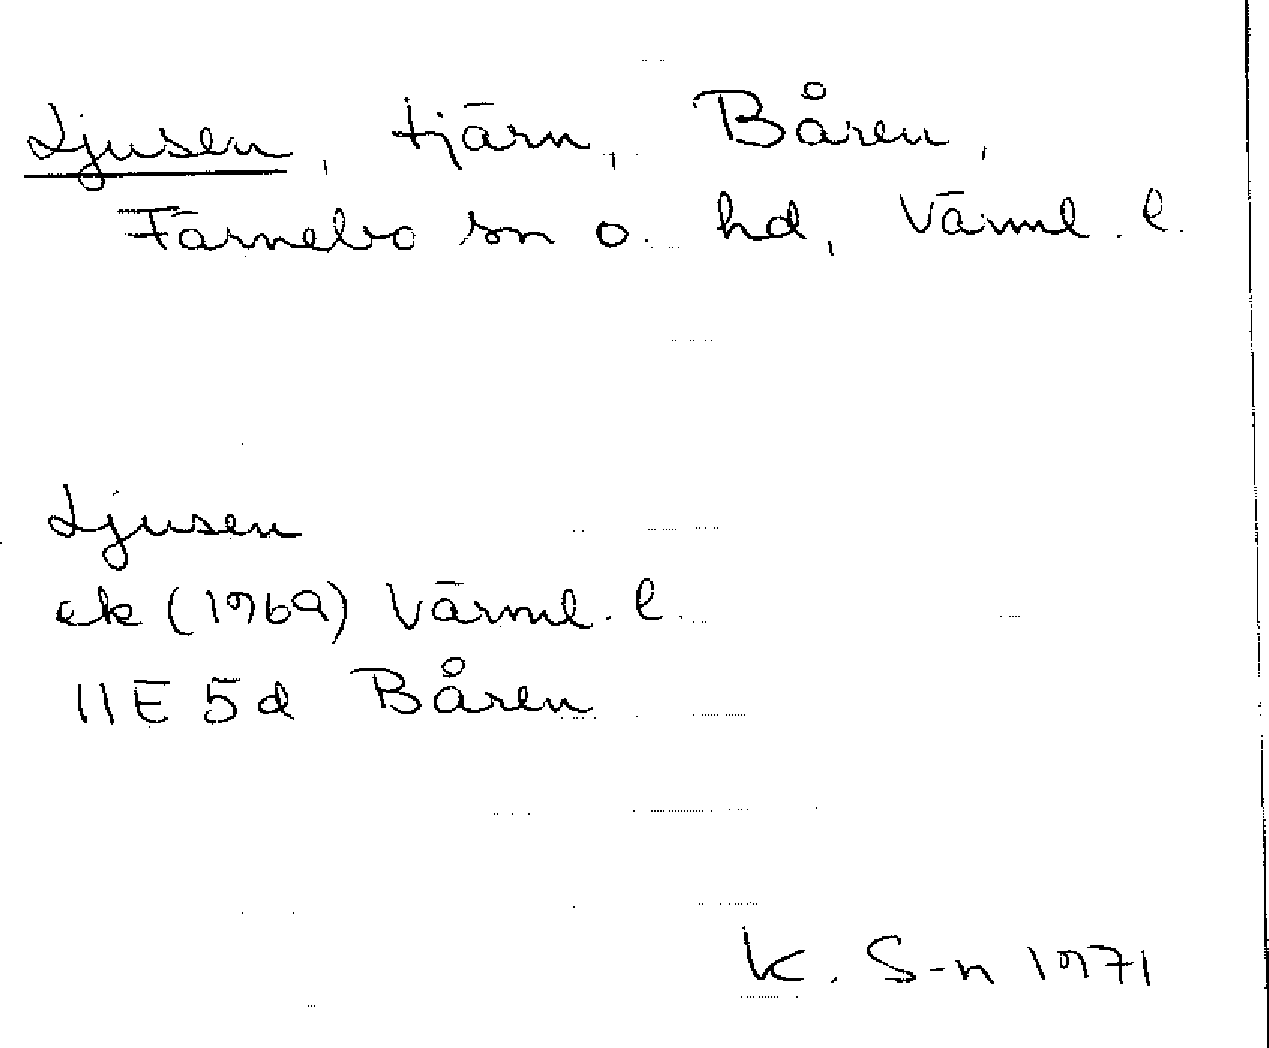 Ljusen, tjärn, Båren,
Färnebo sn o. hd, Värml. l.
Ljusen
ek (1969) Värml. l.
11E 5d Båren
K. S-n 1971